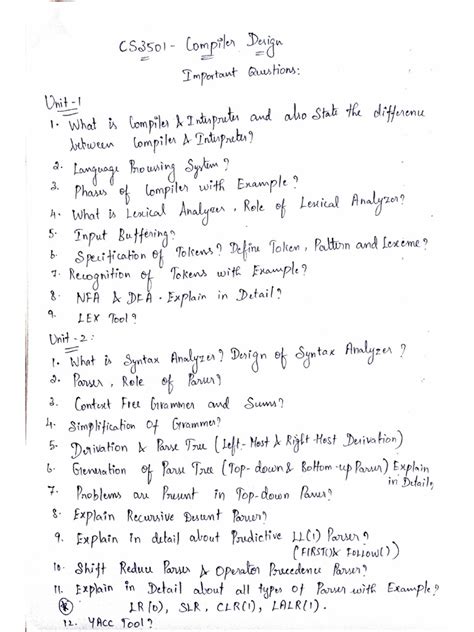 CS3501 - Compiler Design
Important Questions:
Unit - 1
1. What is Compiler & Interpreter and also State the difference
between Compiler & Interpreter?
2. Language Processing System?
3. Phases of Compiler with Example?
4. What is Lexical Analyser, Role of Lexical Analyzer?
5. Input Buffering?
6. Specification of Tokens? Define Token, Pattern and Lexeme?
7. Recognition of Tokens with Example?
8. NFA & DFA - Explain in Detail?
9. LEX Tool?
Unit - 2:
1. What is Syntax Analyzer? Design of Syntax Analyzer?
2. Parser, Role of Parser?
3. Context Free Grammer and Sums?
4. Simplification Of Grammer?
5. Derivation & Parse Tree (Left-Most & Right-Most Derivation)
6. Generation of Parse Tree (Top-down & Bottom-up Parser) Explain
in Detail?
7. Problems are Present in Top-down Parser?
8. Explain Recursive Descent Parser?
9. Explain in detail about Predictive LL(1) Parser?
(FIRST() & FOLLOW())
10. Shift Reduce Parser & Operator Precedence Parser?
11. Explain in Detail about all types of Parser with Example?
LR(0), SLR, CLR(1), LALR(1).
12. YACC Tool?